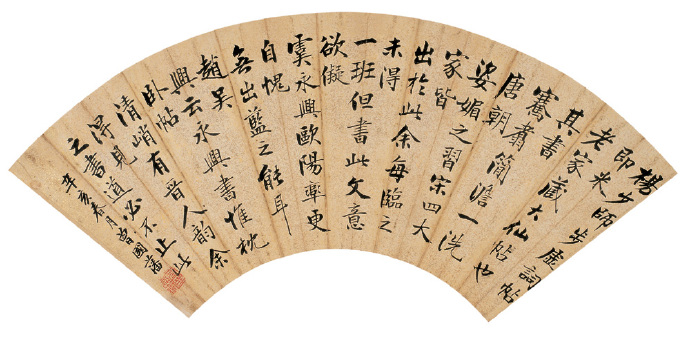 楊少師步虛詞帖
即米
老家藏大仙帖也
其書
騫翥簡澹一洗
唐朝
姿媚之習宋四大
家皆
出於此余每臨之
未得
一班但書此文意
欲儗
虞永興歐陽率更
自愧
無出藍之能耳
趙吳
興云永興書惟枕
臥帖
清峭有晉人韻余
得見
之書道必不止此
辛亥春月曾國藩